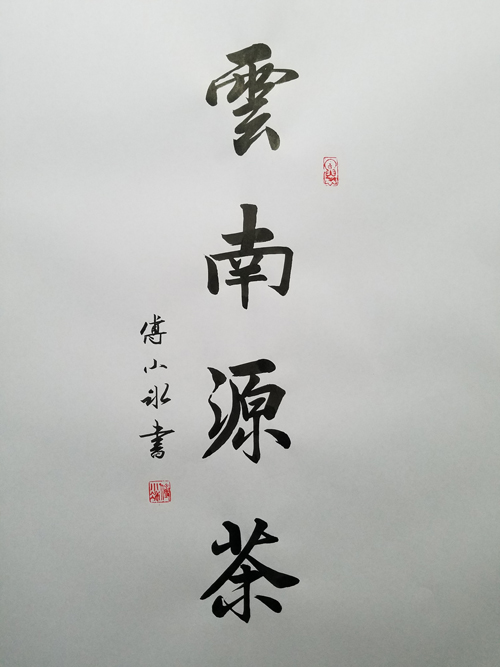 雲南源茶
傅小冰書